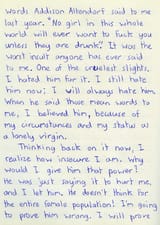 words Addison Allendorf said to me
last year. "No girl in this whole
world will ever want to fuck you
unless they are drunk". It was the
worst insult anyone has ever said
to me. One of the cruelest slights,
I hated him for it. I still hate
him now; I will always hate him.
When he said those mean words to
me, I believed him, because of
my circumstances and my status as
a lonely virgin.
Thinking back on it now, I
realize how insecure I am. Why
would I give him that power?
He was just saying it to hurt me,
and I let him. He doesn't think for
the entire female population! I'm going
to prove him wrong. I will prove